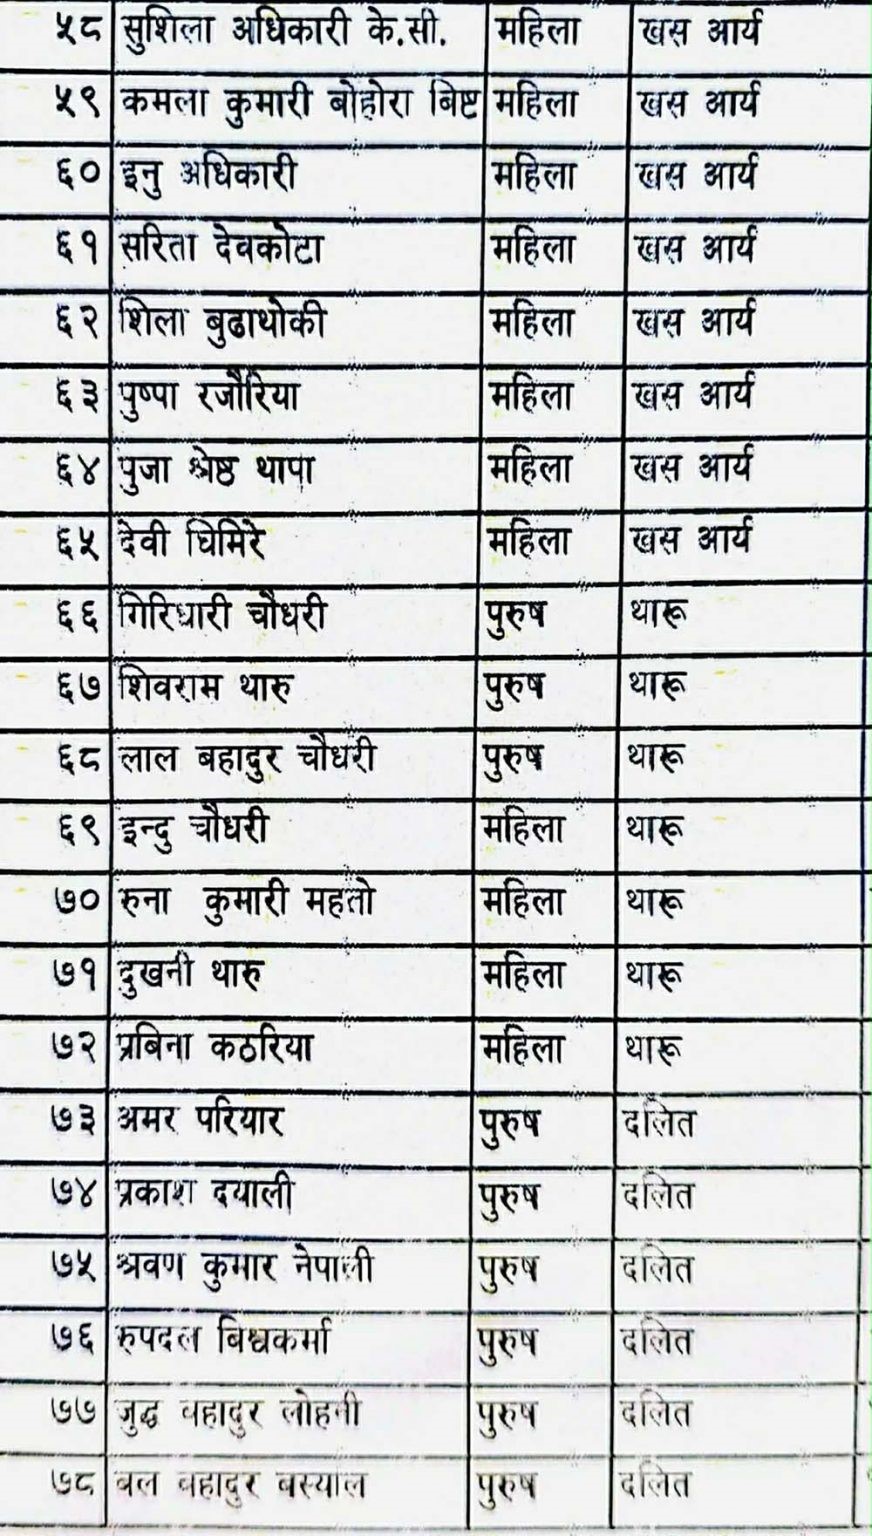 ५८ सुशिला अधिकारी के.सी. महिला खस आर्य
५९ कमला कुमारी बोहोरा बिष्ट महिला खस आर्य
६० इनु अधिकारी महिला खस आर्य
६१ सरिता देवकोटा महिला खस आर्य
६२ शिला बुढाथोकी महिला खस आर्य
६३ पुष्पा रजौरिया महिला खस आर्य
६४ पुजा श्रेष्ठ थापा महिला खस आर्य
६५ देवी घिमिरे महिला खस आर्य
६६ गिरिधारी चौधरी पुरुष थारू
६७ शिवराम थारु पुरुष थारू
६८ लाल बहादुर चौधरी पुरुष थारू
६९ इन्दु चौधरी महिला थारू
७० रुना कुमारी महतो महिला थारू
७१ दुखनी थारु महिला थारू
७२ प्रबिना कठरिया महिला थारू
७३ अमर परियार पुरुष दलित
७४ प्रकाश दयाली पुरुष दलित
७५ श्रवण कुमार नेपाली पुरुष दलित
७६ रुपदल बिश्वकर्मा पुरुष दलित
७७ जुद्ध वहादुर लोहनी पुरुष दलित
७८ बल वहादुर बस्याल पुरुष दलित